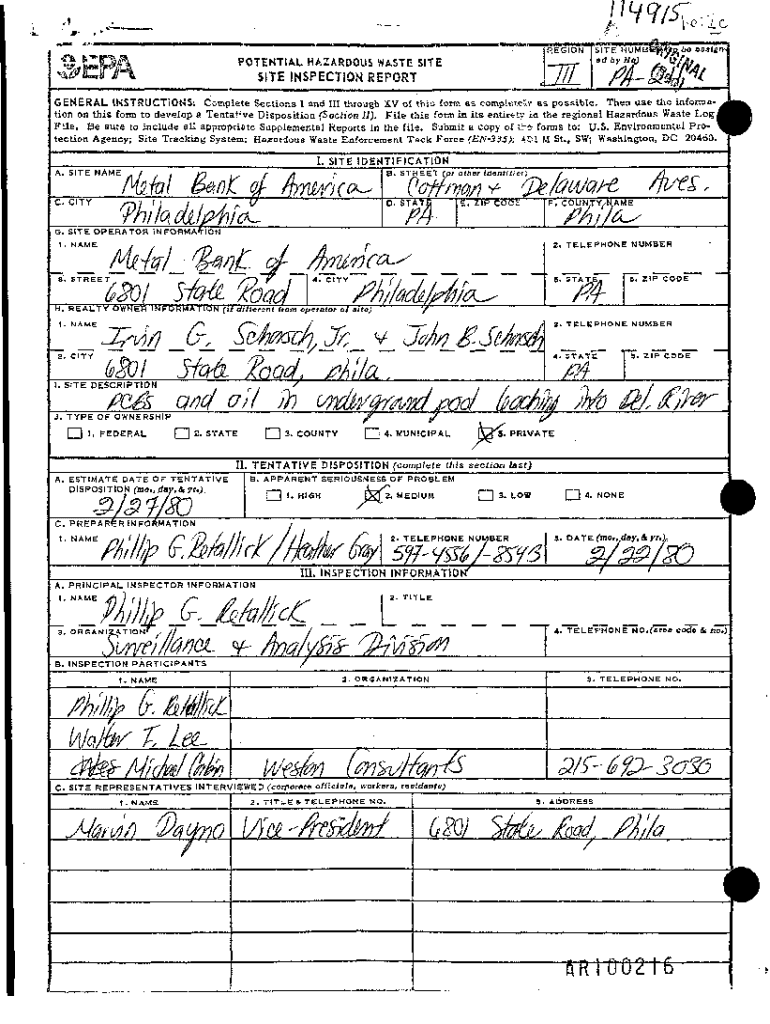 114915
EPA
POTENTIAL HAZARDOUS WASTE SITE
SITE INSPECTION REPORT
REGION
III
SITE NUMBER
PA-
ORIGINAL
GENERAL INSTRUCTIONS: Complete Sections I and III through XV of this form as completely as possible. Then use the informa-
tion on this form to develop a Tentative Disposition (Section II). File this form in its entirety in the regional Hazardous Waste Log
File. Be sure to include all appropriate Supplemental Reports in the file. Submit a copy of the forms to: U.S. Environmental Pro-
tection Agency; Site Tracking System; Hazardous Waste Enforcement Task Force (EN-335); 401 M St., SW; Washington, DC 20460.
I. SITE IDENTIFICATION
A. SITE NAME
Metal Bank of America
B. STREET (or other identifier)
Cottman + Delaware Aves.
C. CITY
Philadelphia
D. STATE
PA
E. ZIP CODE
F. COUNTY NAME
Phila
G. SITE OPERATOR INFORMATION
1. NAME
Metal Bank of America
2. TELEPHONE NUMBER
3. STREET
6801 State Road
4. CITY
Philadelphia
5. STATE
PA
6. ZIP CODE
H. REALTY OWNER INFORMATION (if different from operator of site)
1. NAME
Irvin G. Schorsch, Jr. + John B. Schorsch
2. TELEPHONE NUMBER
3. CITY
6801 State Road, phila.
4. STATE
PA
5. ZIP CODE
I. SITE DESCRIPTION
PCBs and oil in underground pool leaching into Del. River
J. TYPE OF OWNERSHIP
1. FEDERAL 2. STATE 3. COUNTY 4. MUNICIPAL 5. PRIVATE
II. TENTATIVE DISPOSITION (complete this section last)
A. ESTIMATE DATE OF TENTATIVE
DISPOSITION (mo., day, & yr.)
2/27/80
B. APPARENT SERIOUSNESS OF PROBLEM
1. HIGH 2. MEDIUM 3. LOW 4. NONE
C. PREPARER INFORMATION
1. NAME
Phillip G. Retallick / Heather Gray
2. TELEPHONE NUMBER
597-4556/-8543
3. DATE (mo., day, & yr.)
2/22/80
III. INSPECTION INFORMATION
A. PRINCIPAL INSPECTOR INFORMATION
1. NAME
Phillip G. Retallick
2. TITLE
3. ORGANIZATION
Surveillance + Analysis Division
4. TELEPHONE NO. (area code & no.)
B. INSPECTION PARTICIPANTS
1. NAME 2. ORGANIZATION 3. TELEPHONE NO.
Phillip G. Retallick
Walter F. Lee
Michael Corbin Weston Consultants 215-692-3030
C. SITE REPRESENTATIVES INTERVIEWED (corporate officials, workers, residents)
1. NAME 2. TITLE & TELEPHONE NO. 3. ADDRESS
Marvin Dayno Vice-President 6801 State Road, Phila.
AR100216